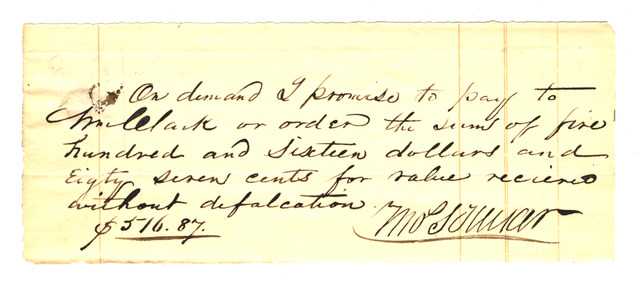 On demand I promise to pay to
Wm Clark or order the sum of five
hundred and Sixteen dollars and
Eigty seven cents for value recieved
without defalcation
$516.87.